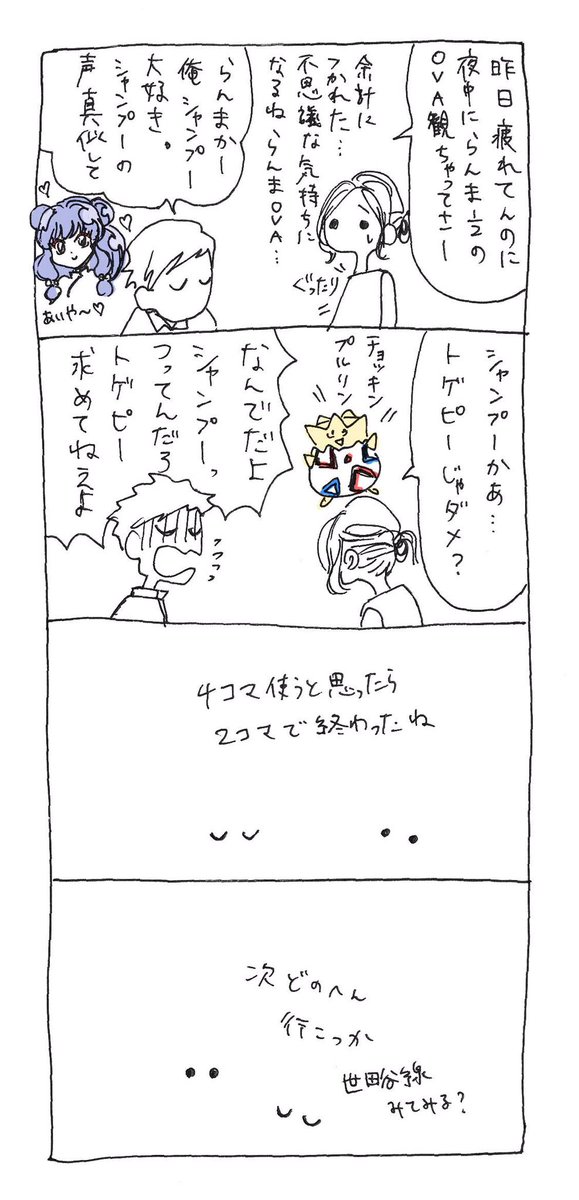 昨日疲れてんのに
夜中にらんま1/2の
OVA観ちゃってさー
余計に
つかれた…
不思議な気持ちに
なるねらんまOVA…
ぐったり
らんまかー
俺シャンプー
大好き。
シャンプーの
声真似して
あいや〜♡
シャンプーかあ…
トゲピーじゃダメ?
チョッキン
プルリン
なんでだよ
シャンプーっ
つってんだろ
トゲピー
求めてねえよ
4コマ使うと思ったら
2コマで終わったね
次どのへん
行こっか
世田谷線
みてみる?